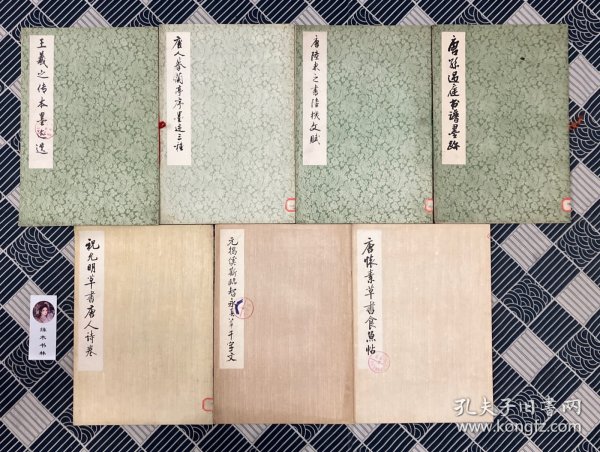 王羲之传本墨迹选
唐人摹兰亭序墨迹三种
唐陆柬之书陆机文赋
唐孙过庭书谱墨迹
祝允明草书唐人诗卷
元揭傒斯临智永真草千字文
唐怀素草书食鱼帖
缘木书林
孔夫子旧书网
www.kongfz.com